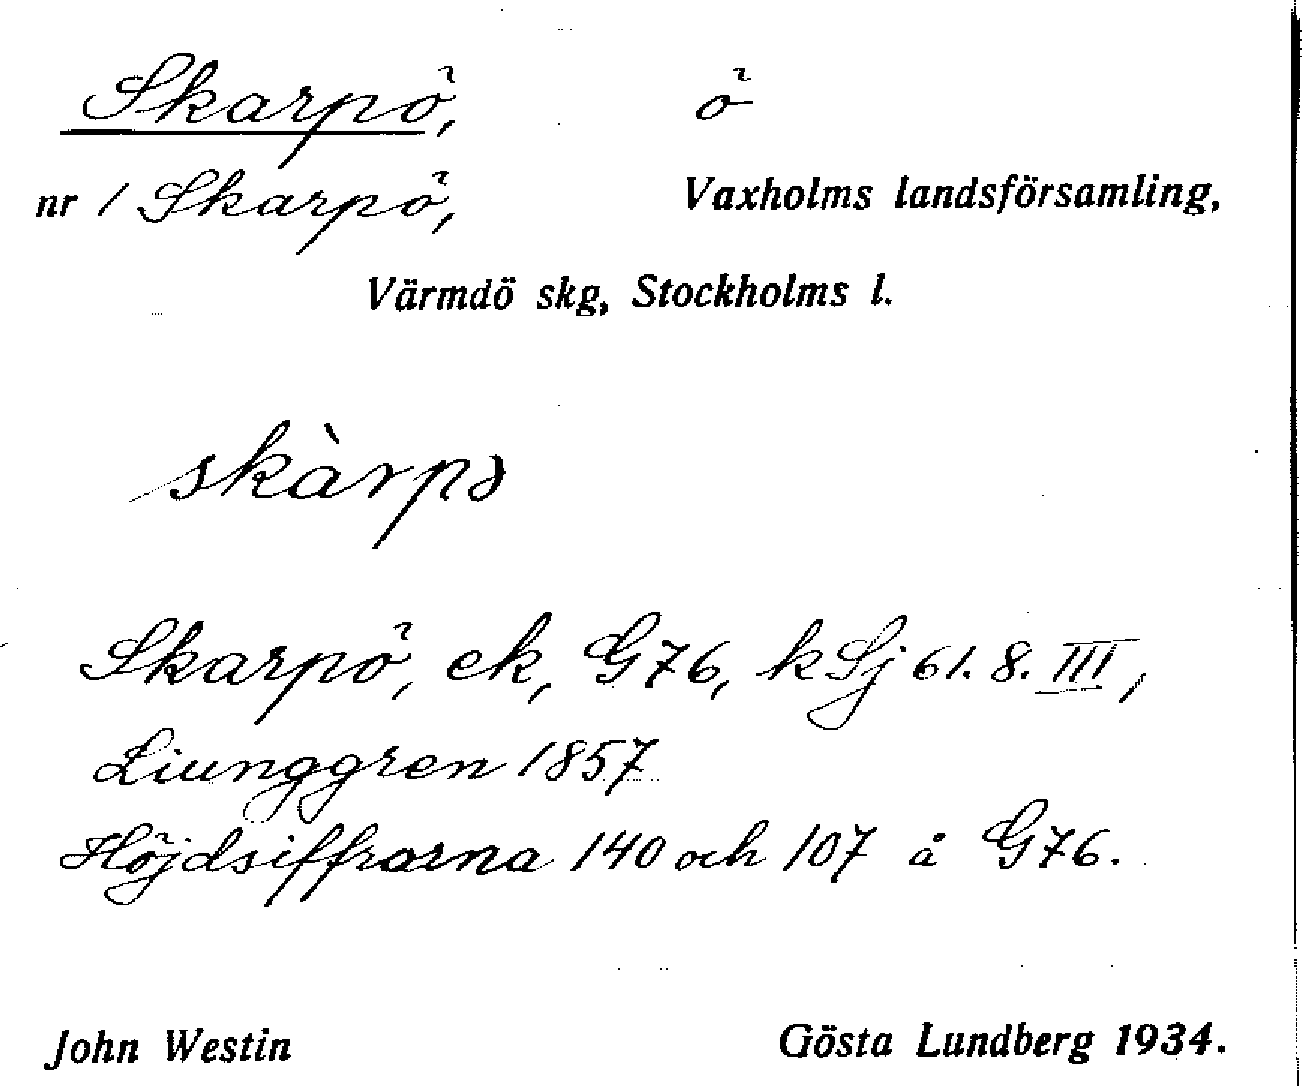 Skarpö, ö
nr 1 Skarpö, Vaxholms landsförsamling,
Värmdö skg, Stockholms l.
skàrpə
Skarpö, ek, G76, kSj 61. 8. III,
Liunggren 1857
Höjdsiffrorna 140 och 107 å G76.
John Westin Gösta Lundberg 1934.